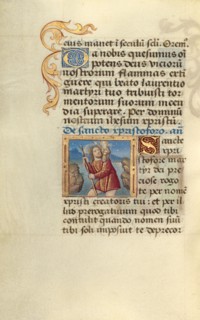 eius manet in seculum seculi. Orem
Da nobis quesumus om
ipotens deus viciorū
nostrorum flammas exti
guere qui beato laurentio
martyri tuo tribuisti tor
mentorum suorum incen
dia superare. Per dominū
nostrum ihesum xpristū.
De sancto xpristoforo. an
Sancte
xpri
stofore mar
tyr dei pre
ciose rogo
te per nomē
xpristi creatoris tui: et per il
lud prerogativum quod tibi
contulit quando nomen suū
tibi soli imposuit te deprecor